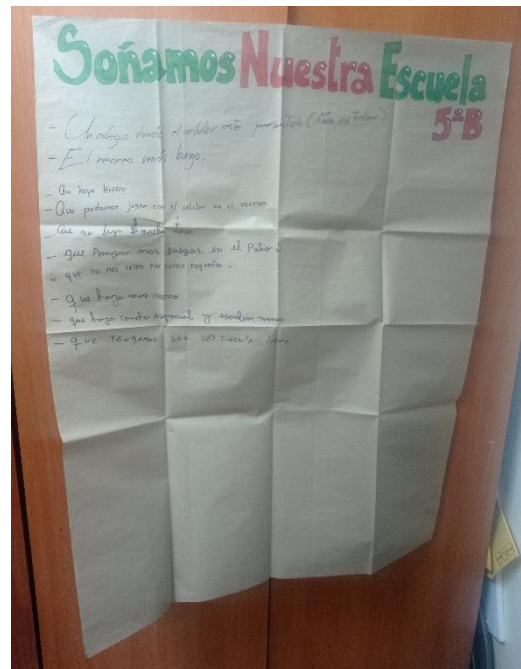 Soñamos Nuestra Escuela
5ºB
- Un colegio donde el celular este permitido (Para estudiar)
- El recreo más largo.
- Que haya kiosco
- Que podamos jugar con el celular en el recreo
- Que no haya tarea
- que Pongan mas juegos en el Patio
- que no nos reten por cosas pequeñas.
- que haya mas recreo
- que haya
- que TENGAMOS UNA